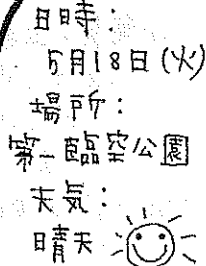 日時:
5月18日(火)
場所:
第一臨空公園
天気:
晴天